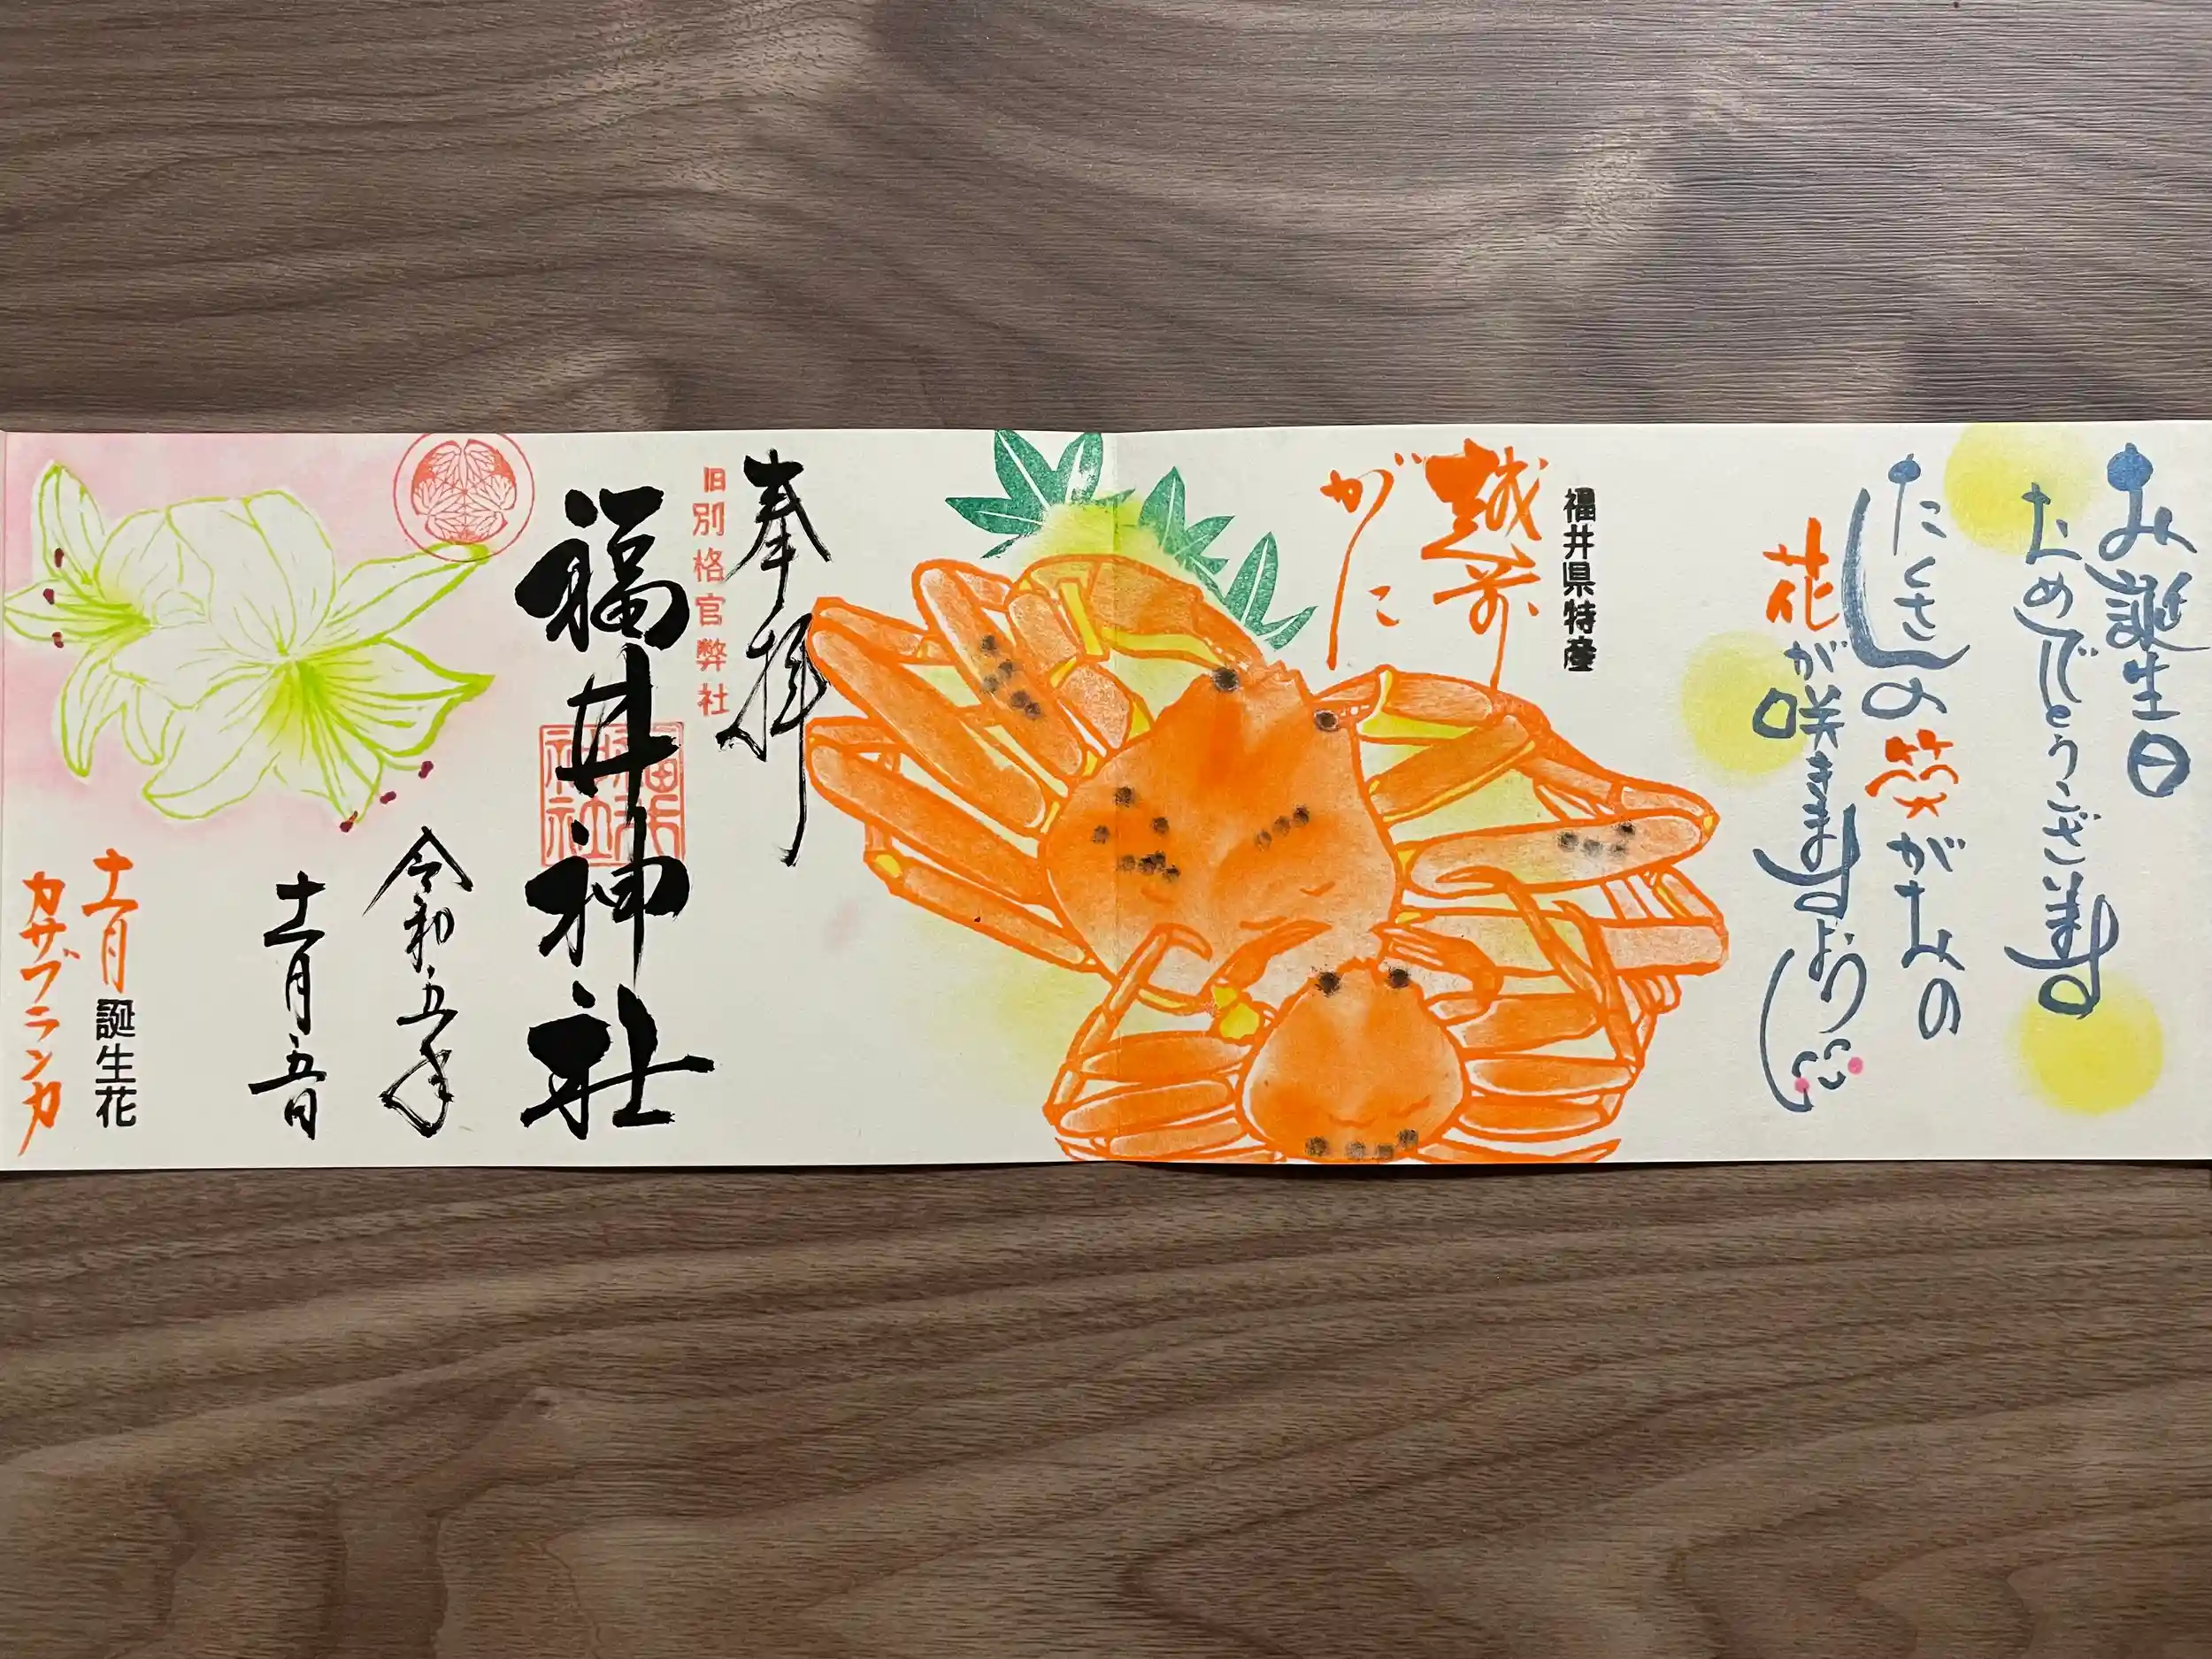 お誕生日
おめでとうございます
たくさんの笑がおの
花が咲きますように
福井県特産
越前
がに
奉拝
旧別格官幣社
福井神社
令和五年
十一月五日
十一月誕生花
カサブランカ